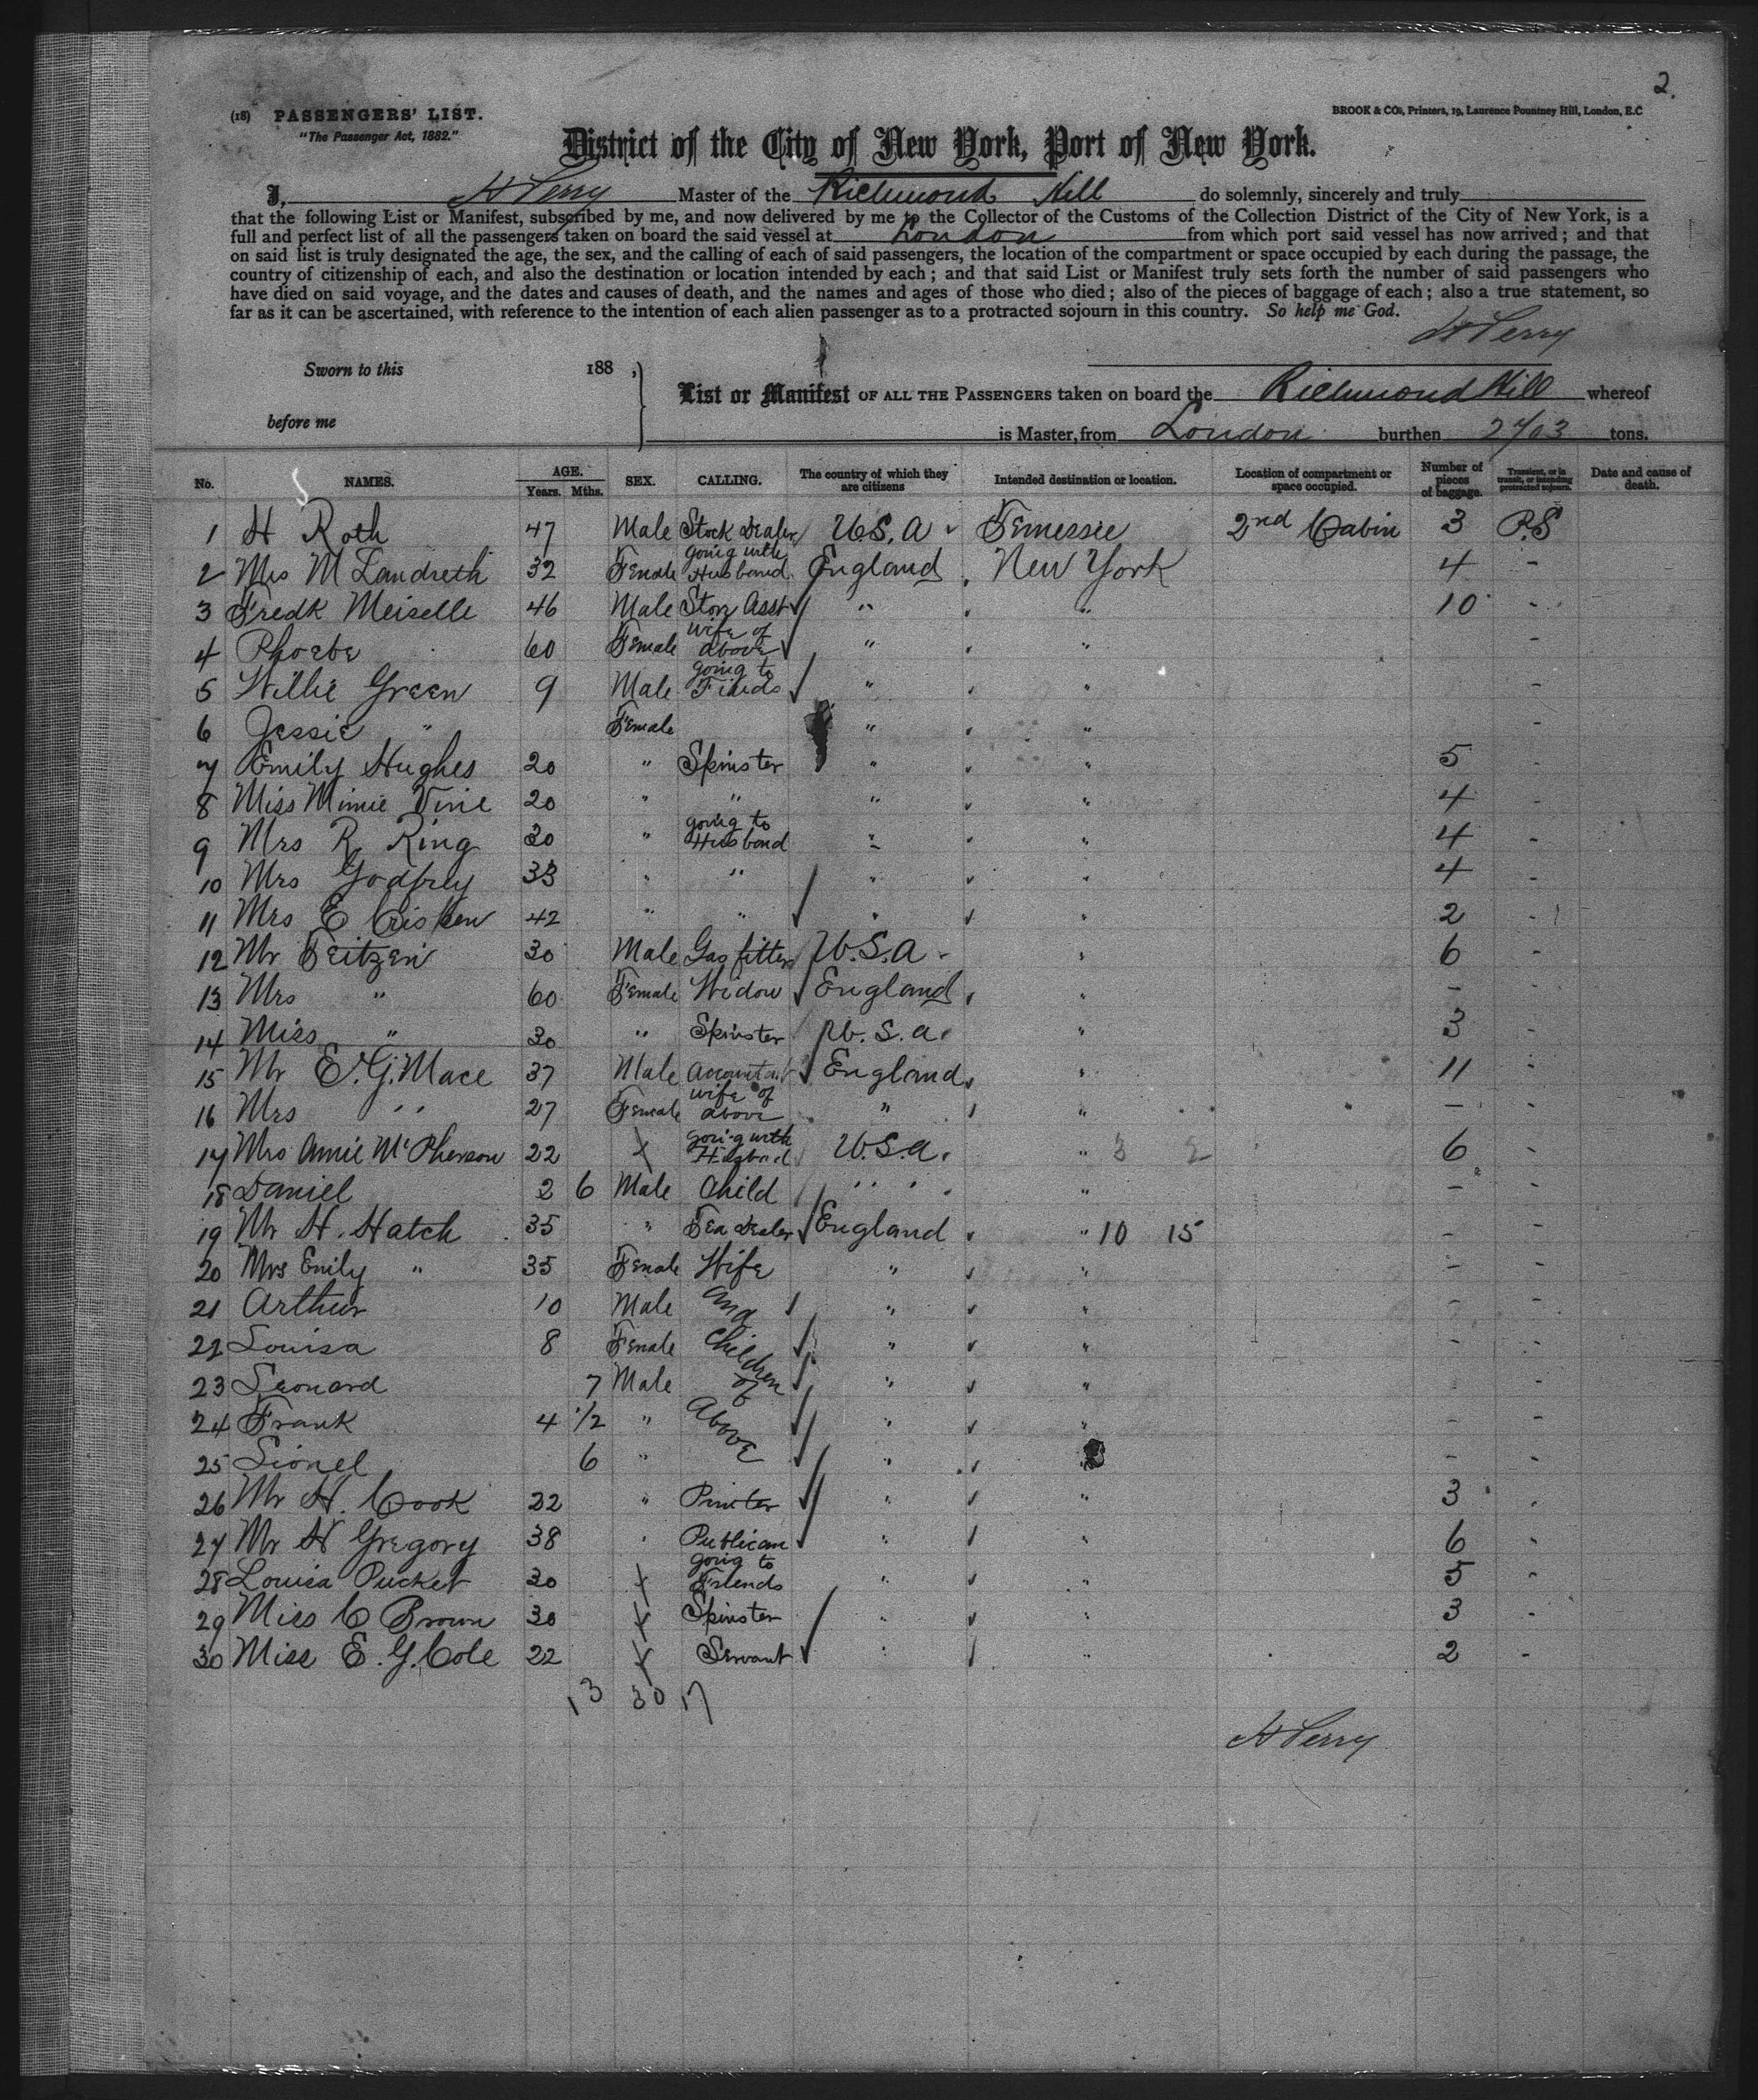 2.
(18) PASSENGERS' LIST.
"The Passenger Act, 1882."
BROOK & CO., Printers, 19, Laurence Pountney Hill, London, E.C
District of the City of New York, Port of New York.
I, H Perry Master of the Richmond Hill do solemnly, sincerely and truly
that the following List or Manifest, subscribed by me, and now delivered by me to the Collector of the Customs of the Collection District of the City of New York, is a
full and perfect list of all the passengers taken on board the said vessel at London from which port said vessel has now arrived; and that
on said list is truly designated the age, the sex, and the calling of each of said passengers, the location of the compartment or space occupied by each during the passage, the
country of citizenship of each, and also the destination or location intended by each; and that said List or Manifest truly sets forth the number of said passengers who
have died on said voyage, and the dates and causes of death, and the names and ages of those who died; also of the pieces of baggage of each; also a true statement, so
far as it can be ascertained, with reference to the intention of each alien passenger as to a protracted sojourn in this country. So help me God.
H Perry
Sworn to this 188 ,
before me
List or Manifest OF ALL THE PASSENGERS taken on board the Richmond Hill whereof
is Master, from London burthen 2703 tons.
No. NAMES. AGE. Years. Mths. SEX. CALLING. The country of which they are citizens Intended destination or location. Location of compartment or space occupied. Number of pieces of baggage. Transient, or in transit, or intending protracted sojourn. Date and cause of death.
1 H Roth 47 Male Stock Dealer U.S.A Tennessie 2nd Cabin 3 P.S
2 Mrs M Landreth 32 Female going with Husband England New York 4 -
3 Fredk Meiselle 46 Male Store Asst " " 10 -
4 Phoebe 60 Female wife of above " " -
5 Willie Green 9 Male going to Finds " " -
6 Jessie " Female " " -
7 Emily Hughes 20 " Spinster " " 5 -
8 Miss Minie Vine 20 " " " " 4 -
9 Mrs R Ring 20 " going to Husband " " 4 -
10 Mrs Godfrey 33 " " " " 4 -
11 Mrs E Crisken 42 " " " " 2 -
12 Mr Feitzen 30 Male Gas fitter U.S.A " 6 -
13 Mrs " 60 Female Widow England " - -
14 Miss " 30 " Spinster U.S.A. " 3 -
15 Mr E.G. Mace 37 Male Accountant England " 11 -
16 Mrs " 27 Female wife of above " " - -
17 Mrs Annie McPherson 22 + going with Husband U.S.A. " 3 2 6 -
18 Daniel 2 6 Male Child " " " - -
19 Mr H. Hatch 35 " Tea Dealer England " 10 15 - -
20 Mrs Emily " 35 Female Wife " " - -
21 Arthur 10 Male and " " - -
22 Louisa 8 Female Children " " - -
23 Leonard 7 Male of " " - -
24 Frank 4 1/2 " Above " " - -
25 Lionel 6 " " - -
26 Mr H. Cook 22 " Printer " " 3 -
27 Mr H Gregory 38 " Publican " " 6 -
28 Louisa Pucket 20 + going to Friends " " 5 -
29 Miss C Brown 30 + Spinster " " 3 -
30 Miss E. G. Cole 22 + Servant " " 2 -
13 30 17
H Perry